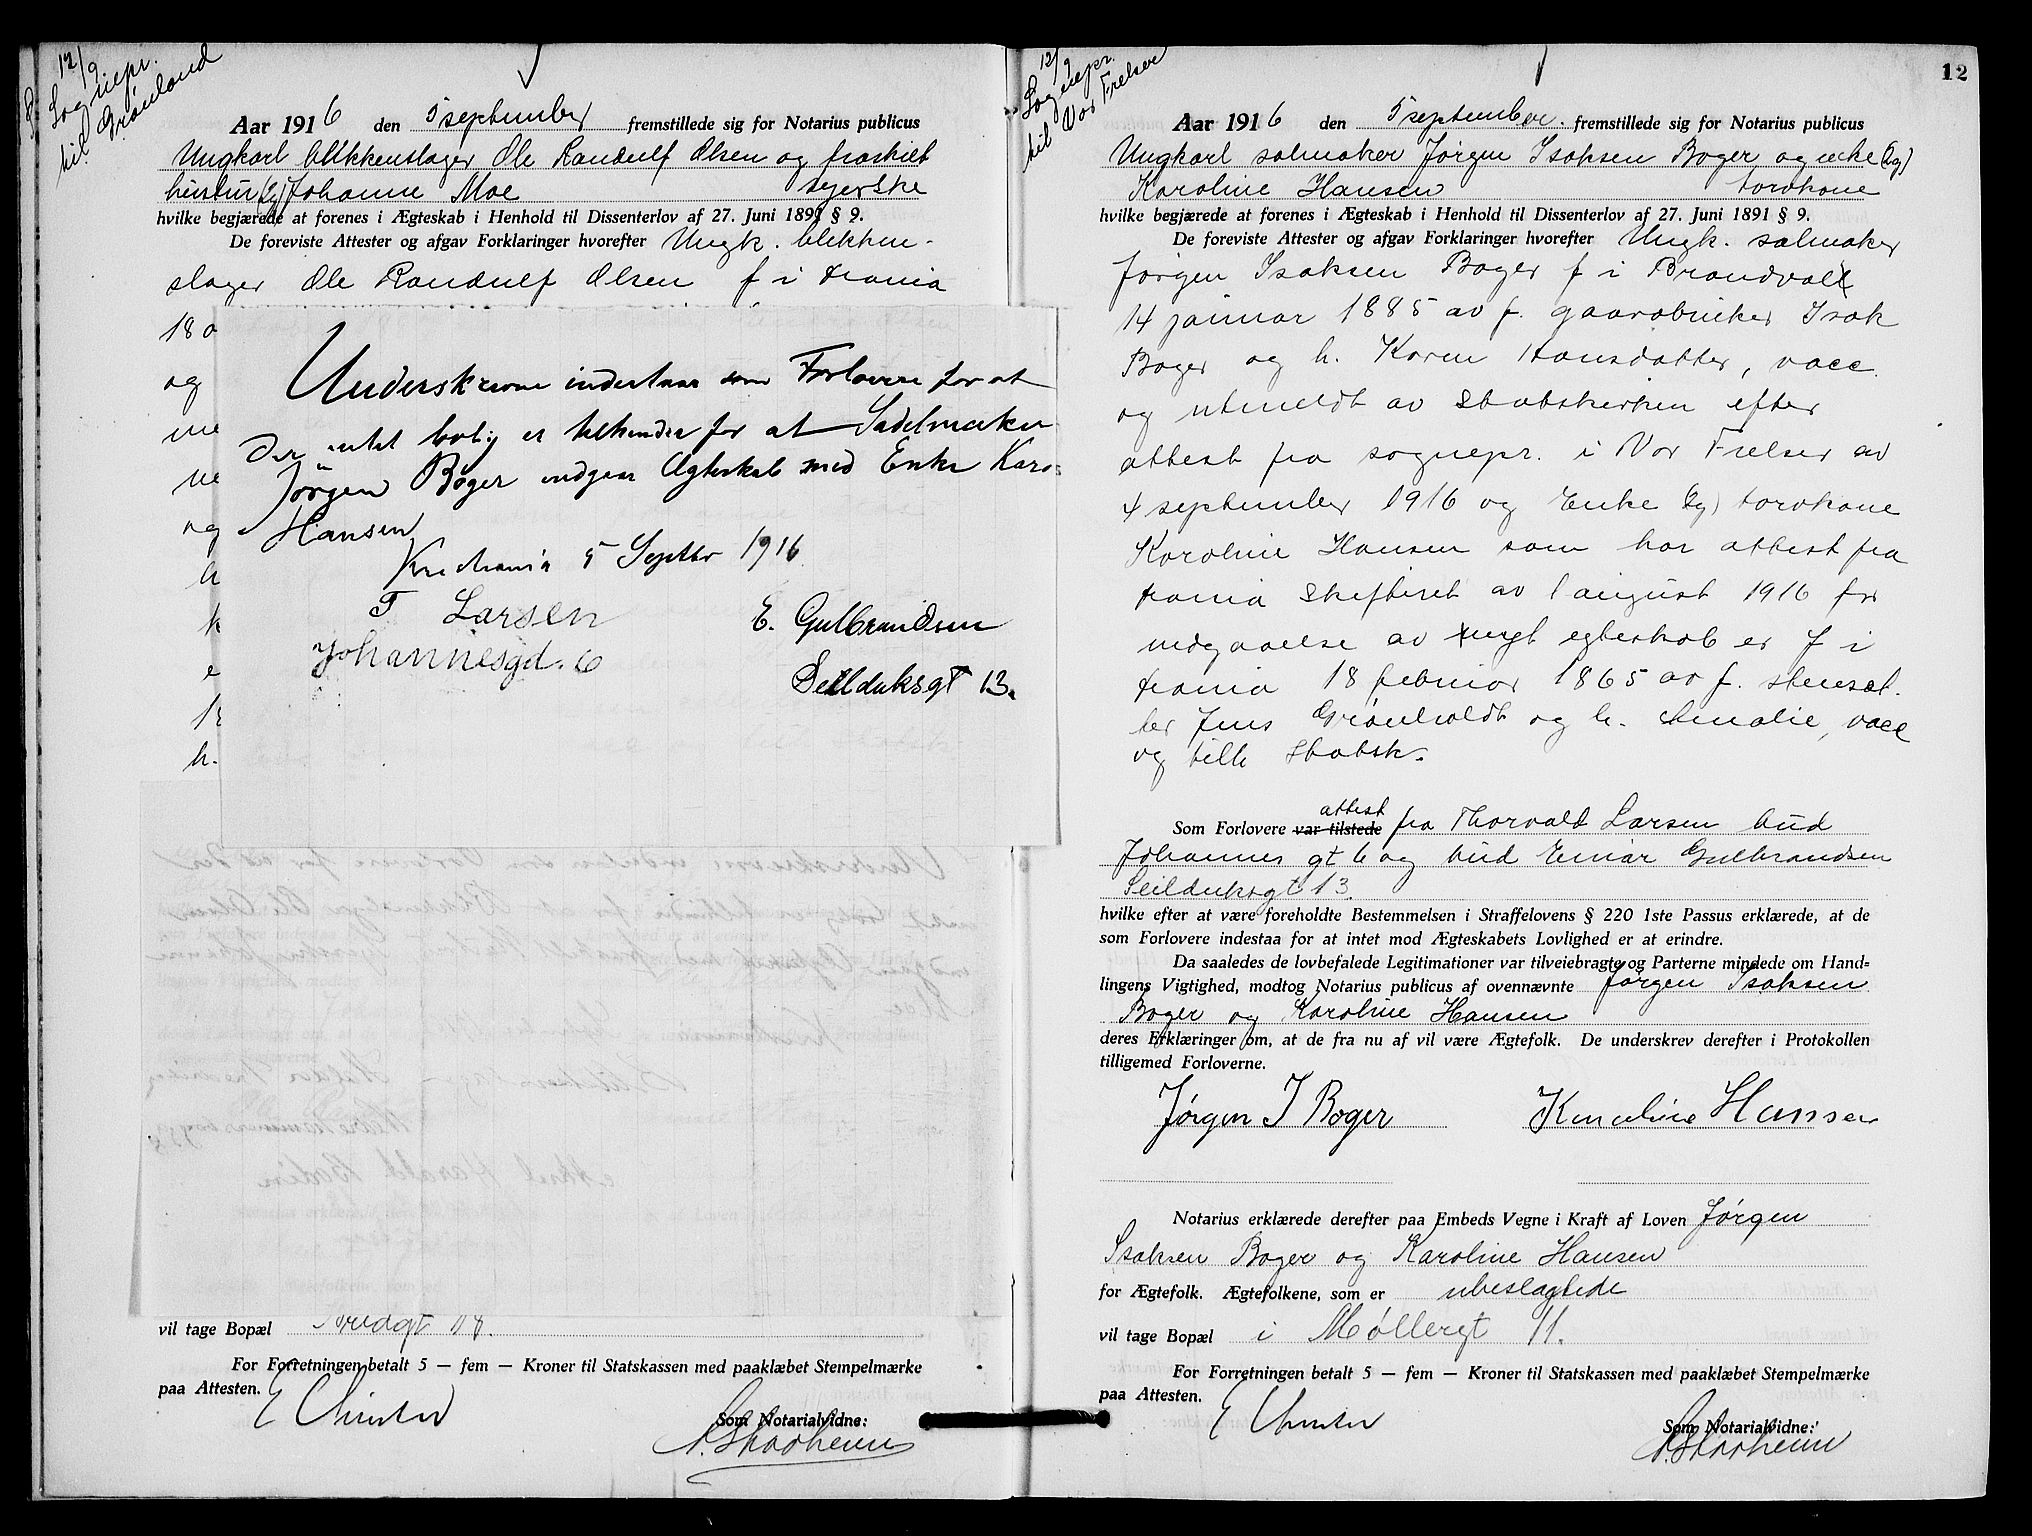 12/9
Sognepr.
til Grønland
Aar 1916 den 5 september fremstillede sig for Notarius publicus
Ungkarl blikkenslager Ole Randulf Olsen og fraskilt
hustru (Eg) Johanne Moe syerske
hvilke begjærede at forenes i Ægteskab i Henhold til Dissenterlov af 27. Juni 1891 § 9.
De foreviste Attester og afgav Forklaringer hvorefter Ungk. blikken-
slager Ole Randulf Olsen f i Krania
18
og
me
ne
og
k
e
h.
Underskrevne indestaar som Forlovere for at
der intet lovlig er tilhinder for at Sadelmaker
Jörgen Böger indgaar Ægteskab med Enke Karo-
Hansen
Kristiania 5 Septbr 1916.
T Larsen
Johannesgd. 6
E. Gulbrandsen
Seilduksgt 13.
vil tage Bopæl
For Forretningen betalt 5 — fem — Kroner til Statskassen med paaklæbet Stempelmærke
paa Attesten.
Som Notarialvidne:
12
12/9
Sognepr.
til Vor Frelser
Aar 1916 den 5 september. fremstillede sig for Notarius publicus
Ungkarl salmaker Jørgen Isaksen Boger og enke (Eg)
Karoline Hansen torvkone
hvilke begjærede at forenes i Ægteskab i Henhold til Dissenterlov af 27. Juni 1891 § 9.
De foreviste Attester og afgav Forklaringer hvorefter Ungk. salmaker
Jørgen Isaksen Boger f i Brandval
14 januar 1885 av f. gaardbruker Isak
Boger og h. Karen Hansdatter, vacc.
og utmeldt av Statskirken efter
attest fra sognepr. i Vor Frelser av
4 september 1916 og Enke (Eg) torvkone
Karoline Hansen som har attest fra
Krania Skifteret av 1 august 1916 for
indgaaelse av nyt egteskab er f i
Krania 18 februar 1865 av f. stensæt.
ter Jens Grønholdt og h. Amalie, vacc
og tilh Statsk.
Som Forlovere var tilstede attest fra Thorvald Larsen bud
Johannes gt 6 og bud Einar Gulbrandsen
Seilduksgt 13.
hvilke efter at være foreholdte Bestemmelsen i Straffelovens § 220 1ste Passus erklærede, at de
som Forlovere indestaa for at intet mod Ægteskabets Lovlighed er at erindre.
Da saaledes de lovbefalede Legitimationer var tilveiebragte og Parterne mindede om Hand-
lingens Vigtighed, modtog Notarius publicus af ovennævnte Jørgen Isaksen
Boger og Karoline Hansen
deres Erklæringer om, at de fra nu af vil være Ægtefolk. De underskrev derefter i Protokollen
tilligemed Forloverne.
Jørgen I Boger Karoline Hansen
Notarius erklærede derefter paa Embeds Vegne i Kraft af Loven Jørgen
Isaksen Boger og Karoline Hansen
for Ægtefolk. Ægtefolkene, som er ubeslægtede
vil tage Bopæl i Møllergt 11.
For Forretningen betalt 5 — fem — Kroner til Statskassen med paaklæbet Stempelmærke
paa Attesten.
Som Notarialvidne: